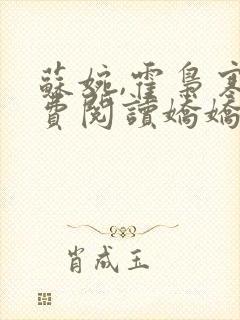 蘇婉,霍梟寒
費閱讀嬌嬌
肖成玉